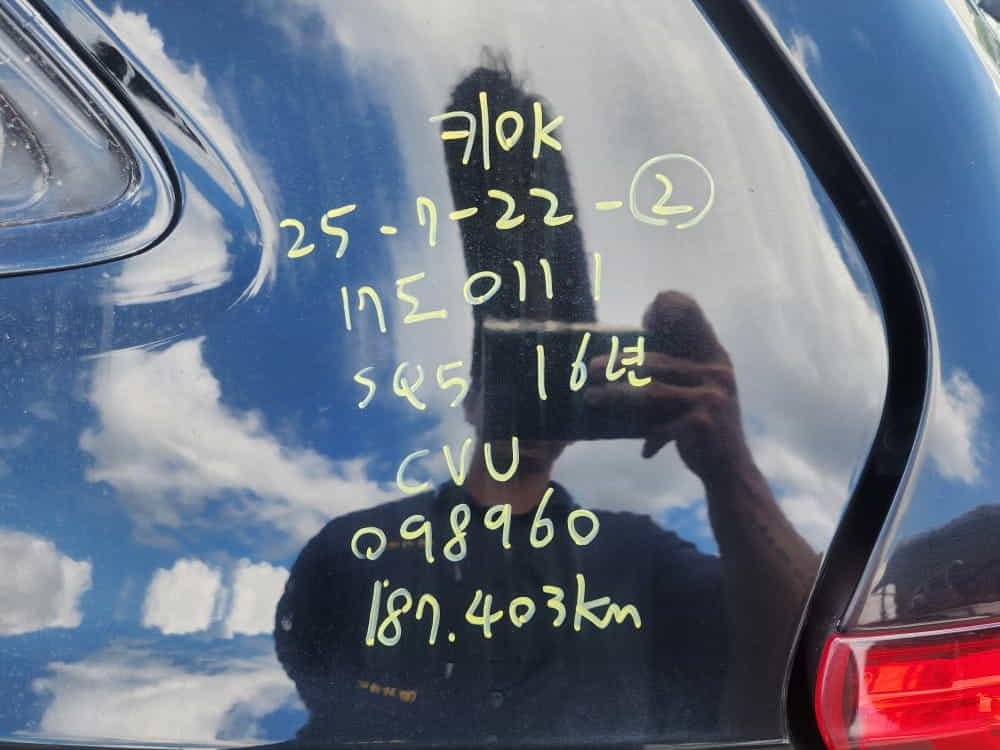 키OK
25-7-22-②
17도0111
SQ5 16년
CVU
098960
187.403km